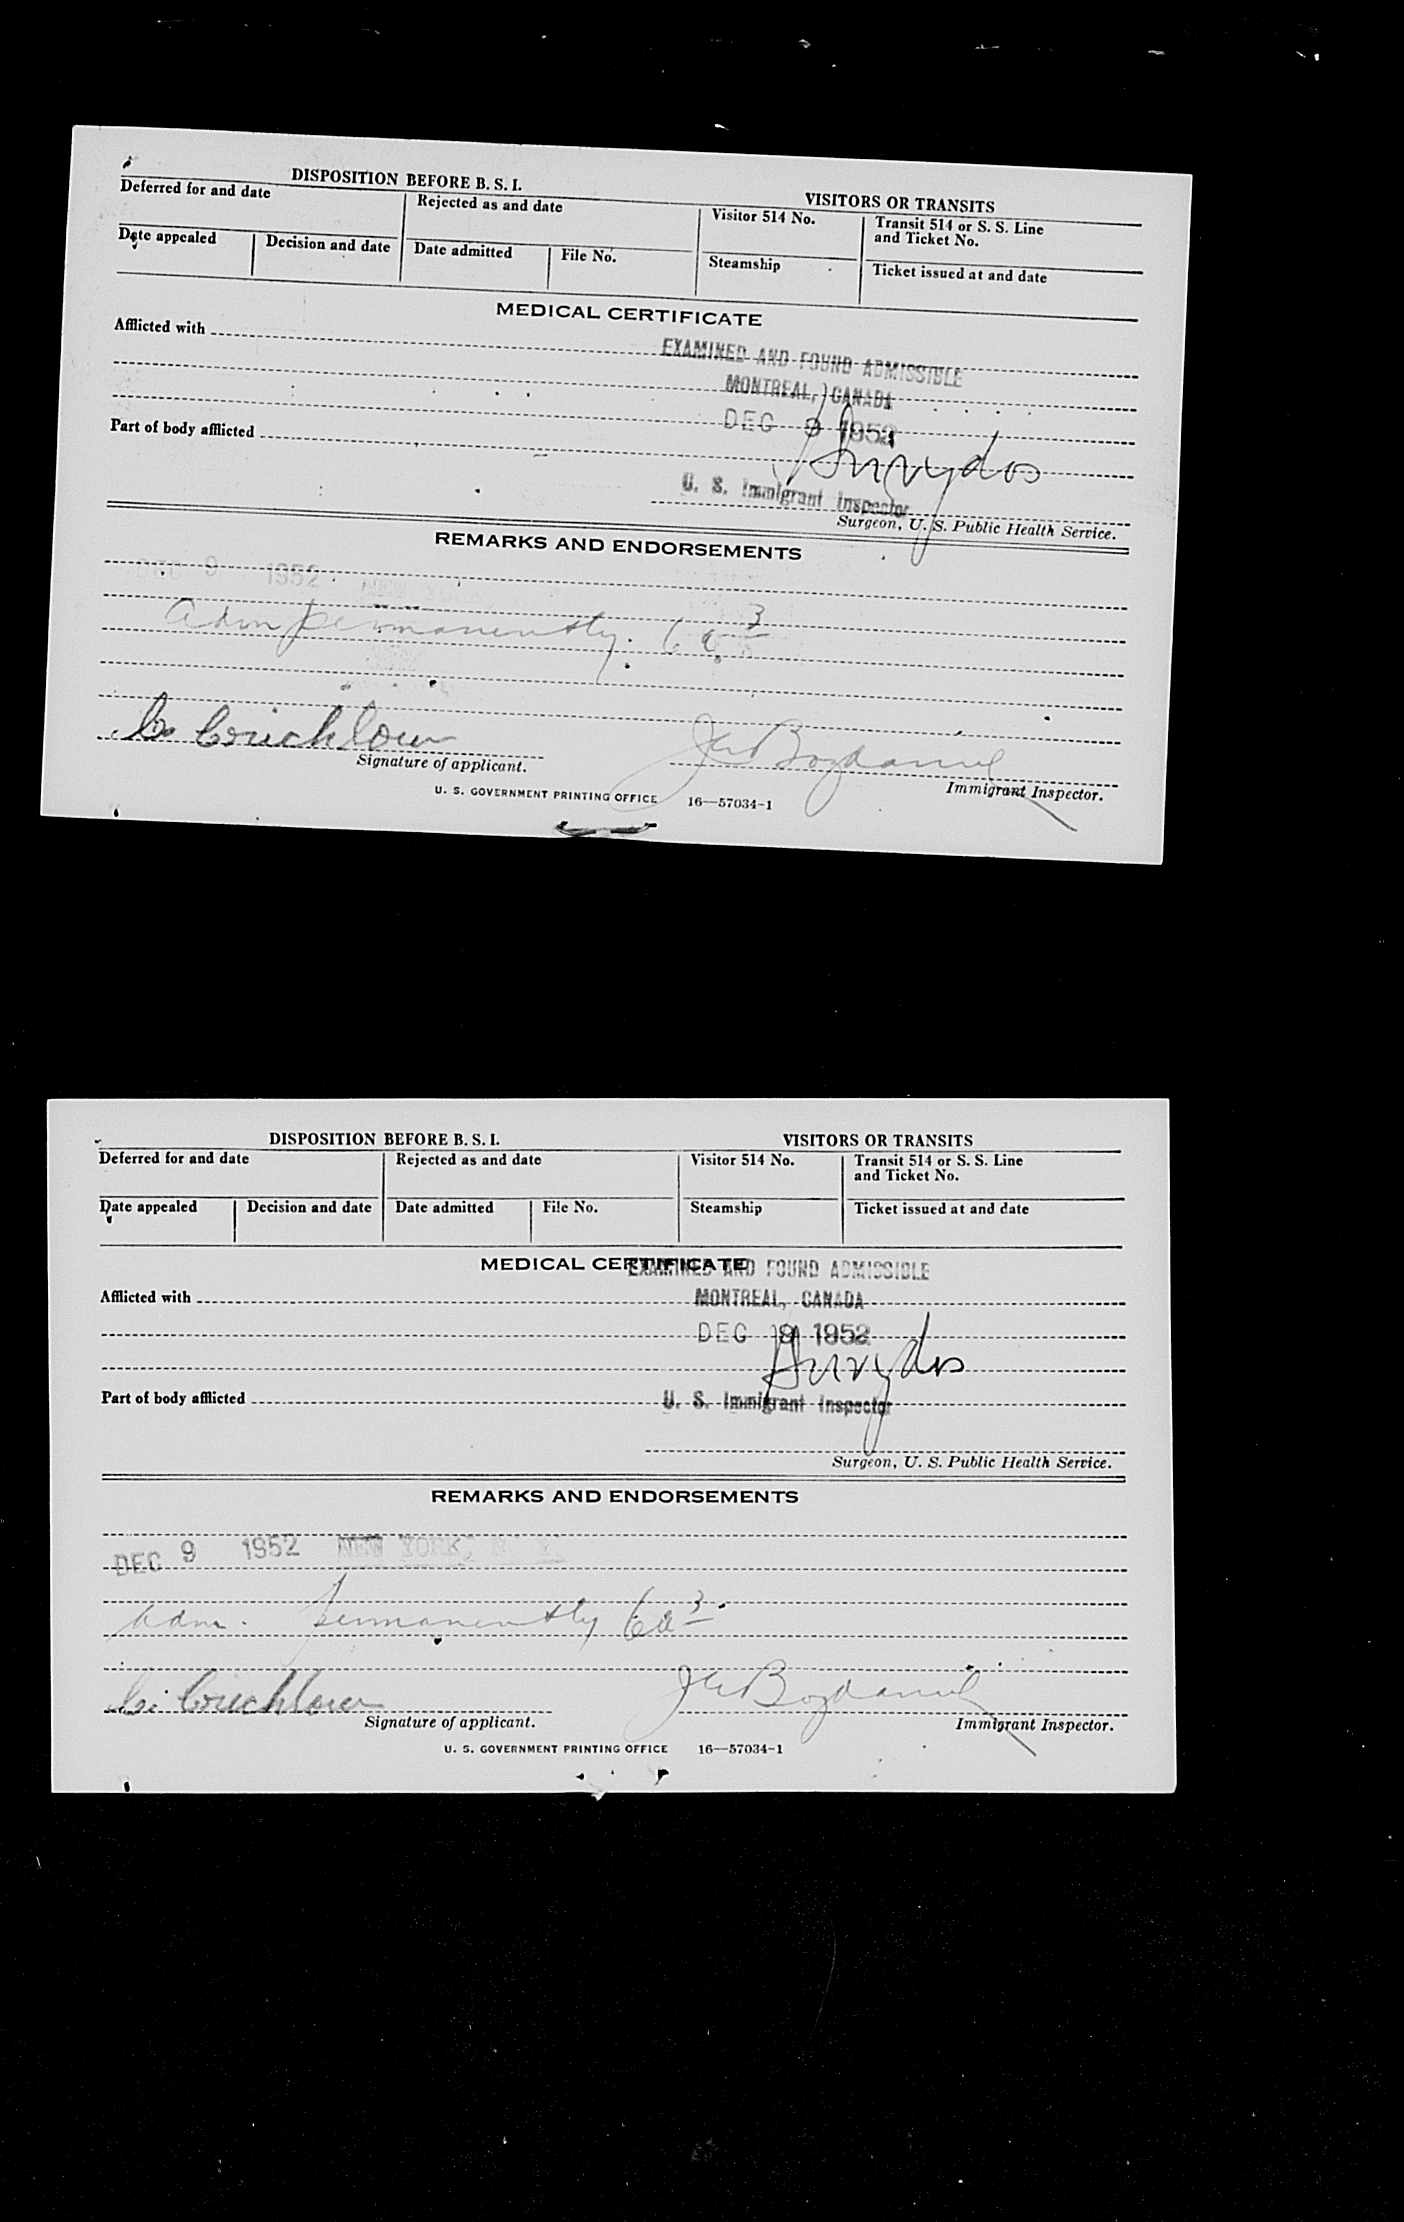 DISPOSITION BEFORE B. S. I.
VISITORS OR TRANSITS
Deferred for and date
Rejected as and date
Visitor 514 No.
Transit 514 or S. S. Line
and Ticket No.
Date appealed
Decision and date
Date admitted
File No.
Steamship
Ticket issued at and date
MEDICAL CERTIFICATE
Afflicted with
EXAMINED AND FOUND ADMISSIBLE
MONTREAL, CANADA
DEC 9 1952
Part of body afflicted
U. S. Immigrant Inspector
Surgeon, U. S. Public Health Service.
REMARKS AND ENDORSEMENTS
DEC 9 1952 NEW YORK,
Adm permanently. 6a3
C. Crichlow
Signature of applicant.
Immigrant Inspector.
U. S. GOVERNMENT PRINTING OFFICE 16—57034-1
DISPOSITION BEFORE B. S. I.
VISITORS OR TRANSITS
Deferred for and date
Rejected as and date
Visitor 514 No.
Transit 514 or S. S. Line
and Ticket No.
Date appealed
Decision and date
Date admitted
File No.
Steamship
Ticket issued at and date
MEDICAL CERTIFICATE
EXAMINED AND FOUND ADMISSIBLE
Afflicted with
MONTREAL, CANADA
DEC 9 1952
Part of body afflicted
U. S. Immigrant Inspector
Surgeon, U. S. Public Health Service.
REMARKS AND ENDORSEMENTS
DEC 9 1952 NEW YORK, N. Y.
Adm. permanently 6a3
C. Crichlow
Signature of applicant.
Immigrant Inspector.
U. S. GOVERNMENT PRINTING OFFICE 16—57034-1